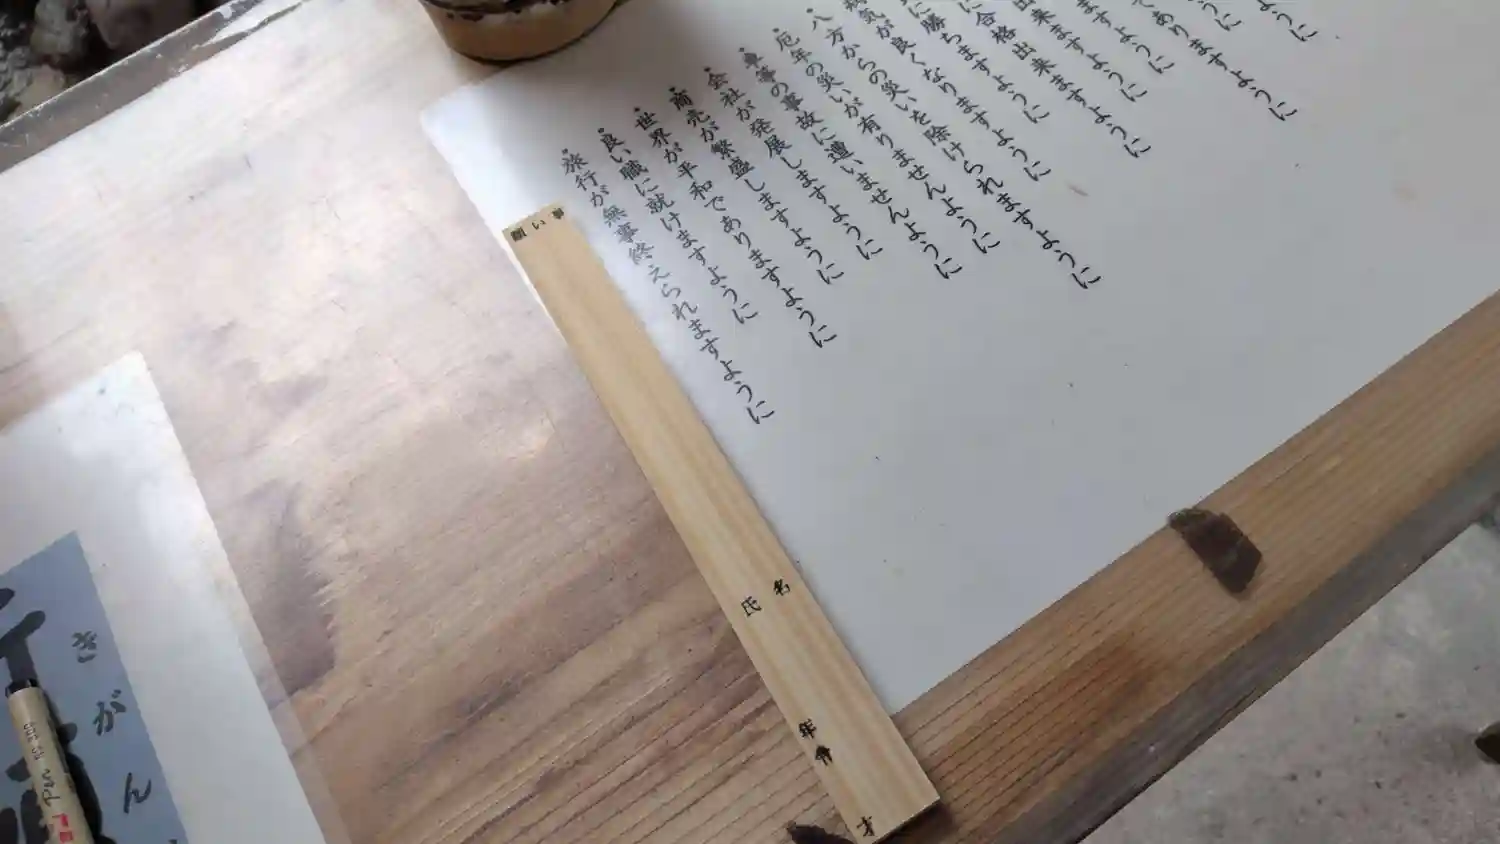 ように
うに
でありますように
ますように
出来ますように
に合格出来ますように
に勝ちますように
気が良くなりますように
・八方からの災いを除けられますように
・厄年の災いが有りませんように
・車等の事故に遭いませんように
・会社が発展しますように
・商売が繁盛しますように
・世界が平和でありますように
・良い職に就けますように
・旅行が無事終えられますように
願い事
氏名
年令
才
きがん